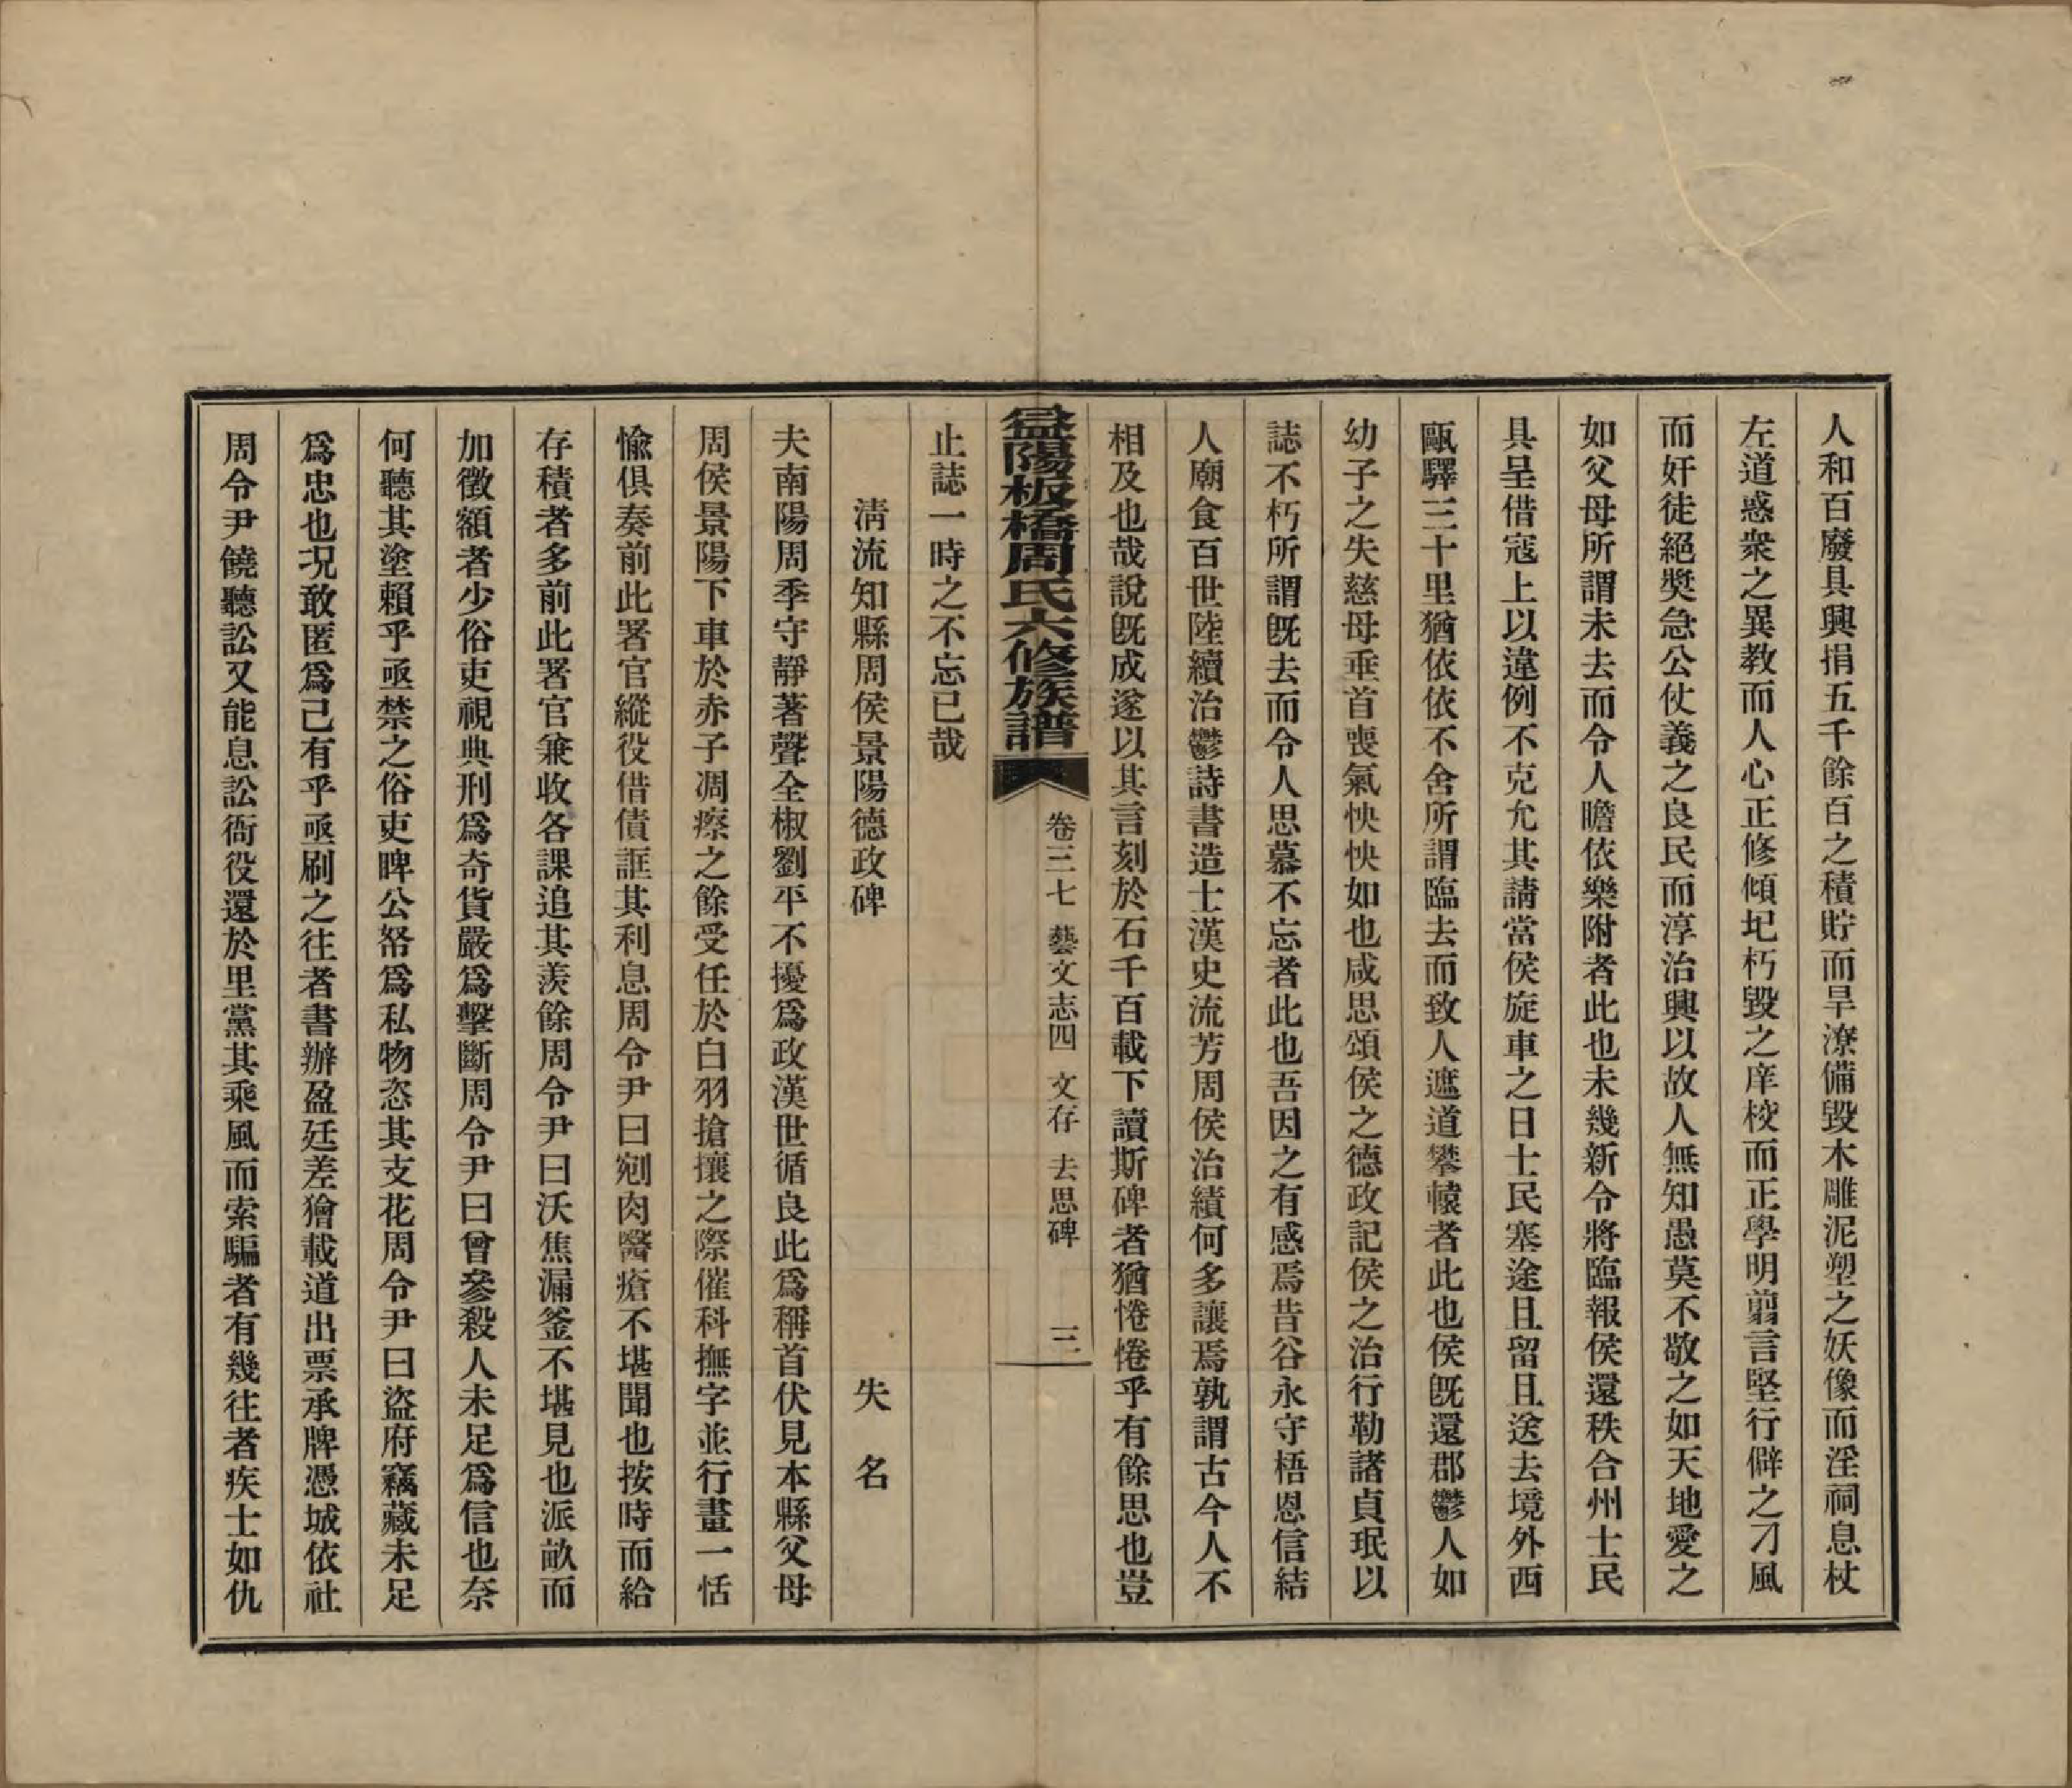 人和百廢具興捐五千餘百之積貯而旱潦備毀木雕泥塑之妖像而淫祠息杖
左道惑衆之異教而人心正修傾圯朽毀之庠校而正學明翦言堅行僻之刁風
而奸徒絕奬急公仗義之良民而淳治興以故人無知愚莫不敬之如天地愛之
如父母所謂未去而令人瞻依樂附者此也未幾新令將臨報侯還秩合州士民
具呈借寇上以違例不克允其請當侯旋車之日士民塞途且留且送去境外西
甌驛三十里猶依依不舍所謂臨去而致人遮道攀轅者此也侯旣還郡鬱人如
幼子之失慈母垂首喪氣怏怏如也咸思頌侯之德政記侯之治行勒諸貞珉以
誌不朽所謂旣去而令人思慕不忘者此也吾因之有感焉昔谷永守梧恩信結
人廟食百世陸續治鬱詩書造士漢史流芳周侯治績何多讓焉孰謂古今人不
相及也哉說旣成遂以其言刻於石千百載下讀斯碑者猶惓惓乎有餘思也豈
益陽板橋周氏六修族譜 卷三七 藝文志四 文存 去思碑 三
止誌一時之不忘已哉
淸流知縣周侯景陽德政碑 失名
夫南陽周季守靜著聲全椒劉平不擾爲政漢世循良此爲稱首伏見本縣父母
周侯景陽下車於赤子凋瘵之餘受任於白羽搶攘之際催科撫字並行畫一恬
愉俱奏前此署官縱役借債誆其利息周令尹曰剜肉醫瘡不堪聞也按時而給
存積者多前此署官兼收各課追其羨餘周令尹曰沃焦漏釜不堪見也派畝而
加徵額者少俗吏視典刑爲奇貨嚴爲擊斷周令尹曰曾參殺人未足爲信也奈
何聽其塗賴乎亟禁之俗吏睥公帑爲私物恣其支花周令尹曰盜府竊藏未足
爲忠也况敢匿爲己有乎亟刷之往者書辦盈廷差獪載道出票承牌憑城依社
周令尹饒聽訟又能息訟衙役還於里黨其乘風而索騙者有幾往者疾士如仇